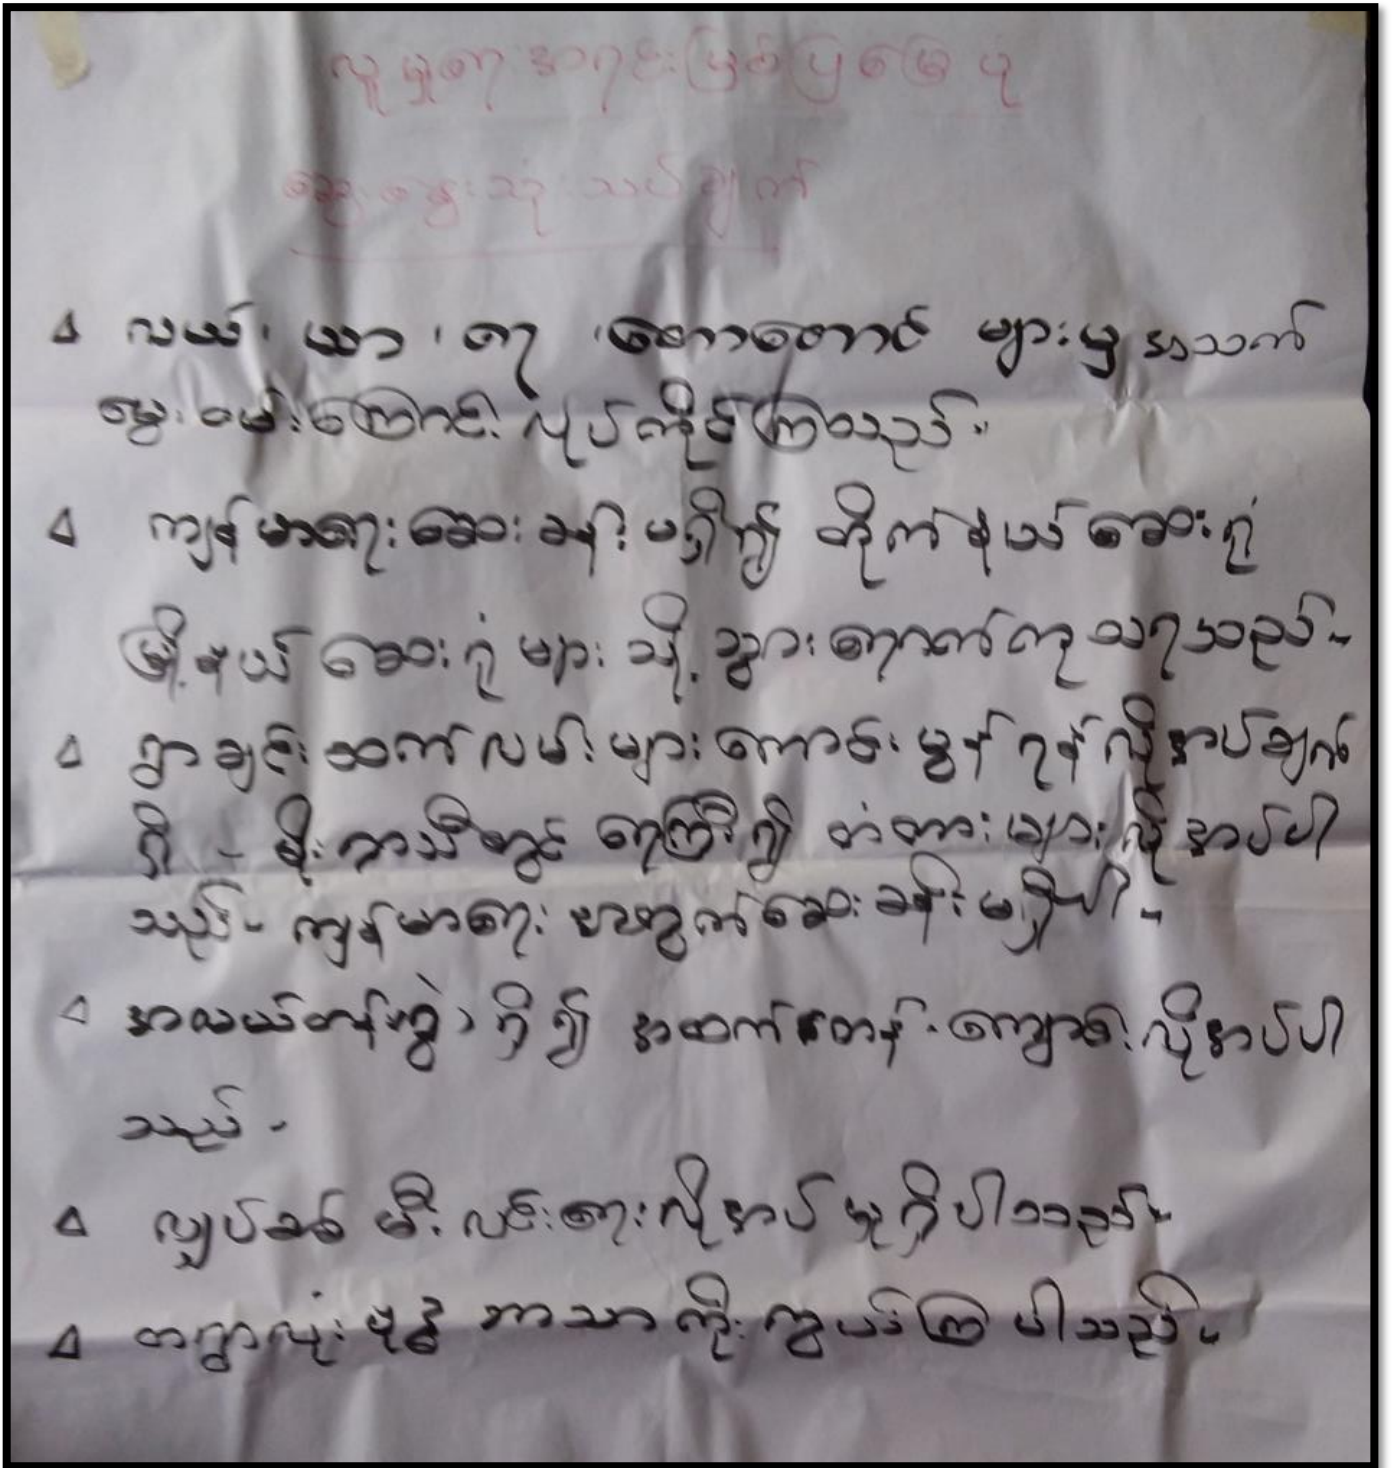 လူမှုရေးအရင်းမြစ်ပြမြေပုံ
ဆွေးနွေးသုံးသပ်ချက်
လယ်၊ ယာ၊ ရေ၊ တောတောင် များမှ အသက်
မွေးဝမ်းကြောင်း လုပ်ကိုင်ကြသည်။
ကျန်မာရေးဆေးခန်းမရှိ၍ တိုက်နယ်ဆေးရုံ
မြို့နယ်ဆေးရုံများသို့ သွားရောက်ကုသရသည်-
ရွာချင်းဆက်လမ်းများကောင်းမွန်ရန်လိုအပ်ချက်
ရှိ - မိုးရာသီတွင် ရေကြီး၍ တံတားများလိုအပ်ပါ
သည်- ကျန်မာရေးအတွက်ဆေးခန်းမရှိပါ-
အလယ်တန်း(ခွဲ)ရှိ၍ အထက်တန်းကျောင်းလိုအပ်ပါ
သည်-
လျှပ်စစ်မီးလင်းရေးလိုအပ်မှုရှိပါသည်-
တရွာလုံး ဗုဒ္ဓဘာသာကိုးကွယ်ကြပါသည်-